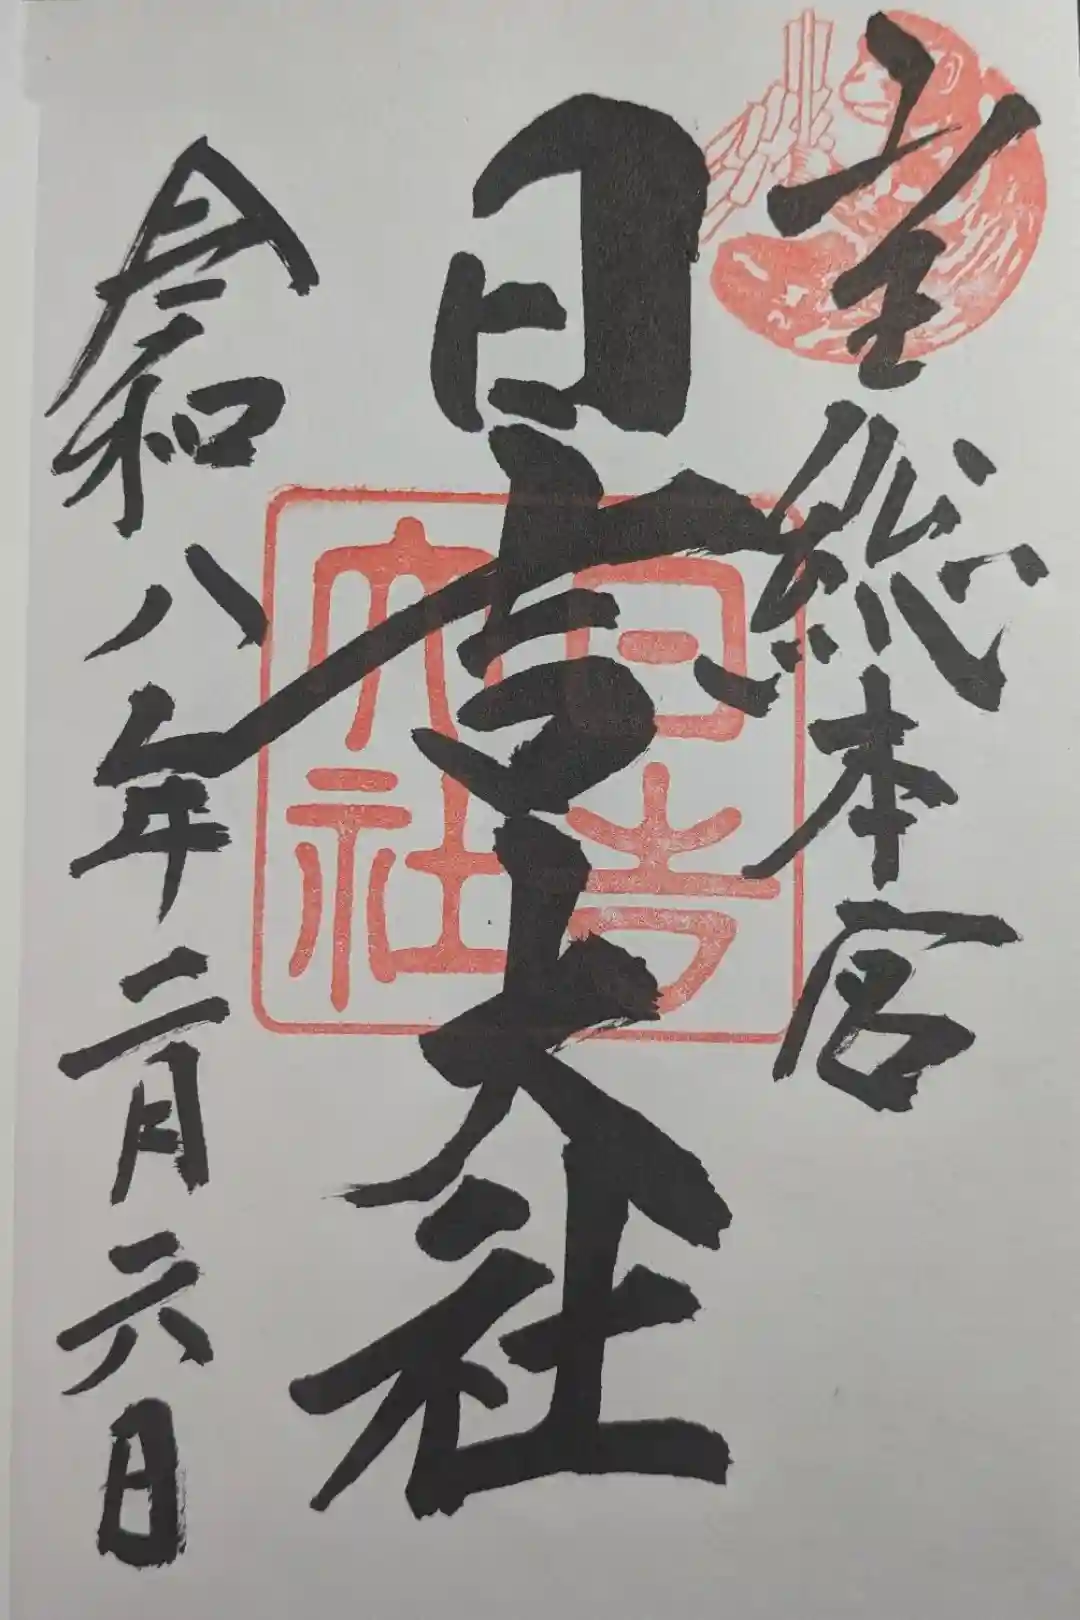 全総本宮
日吉大社
日吉
大社
令和八年二月六日